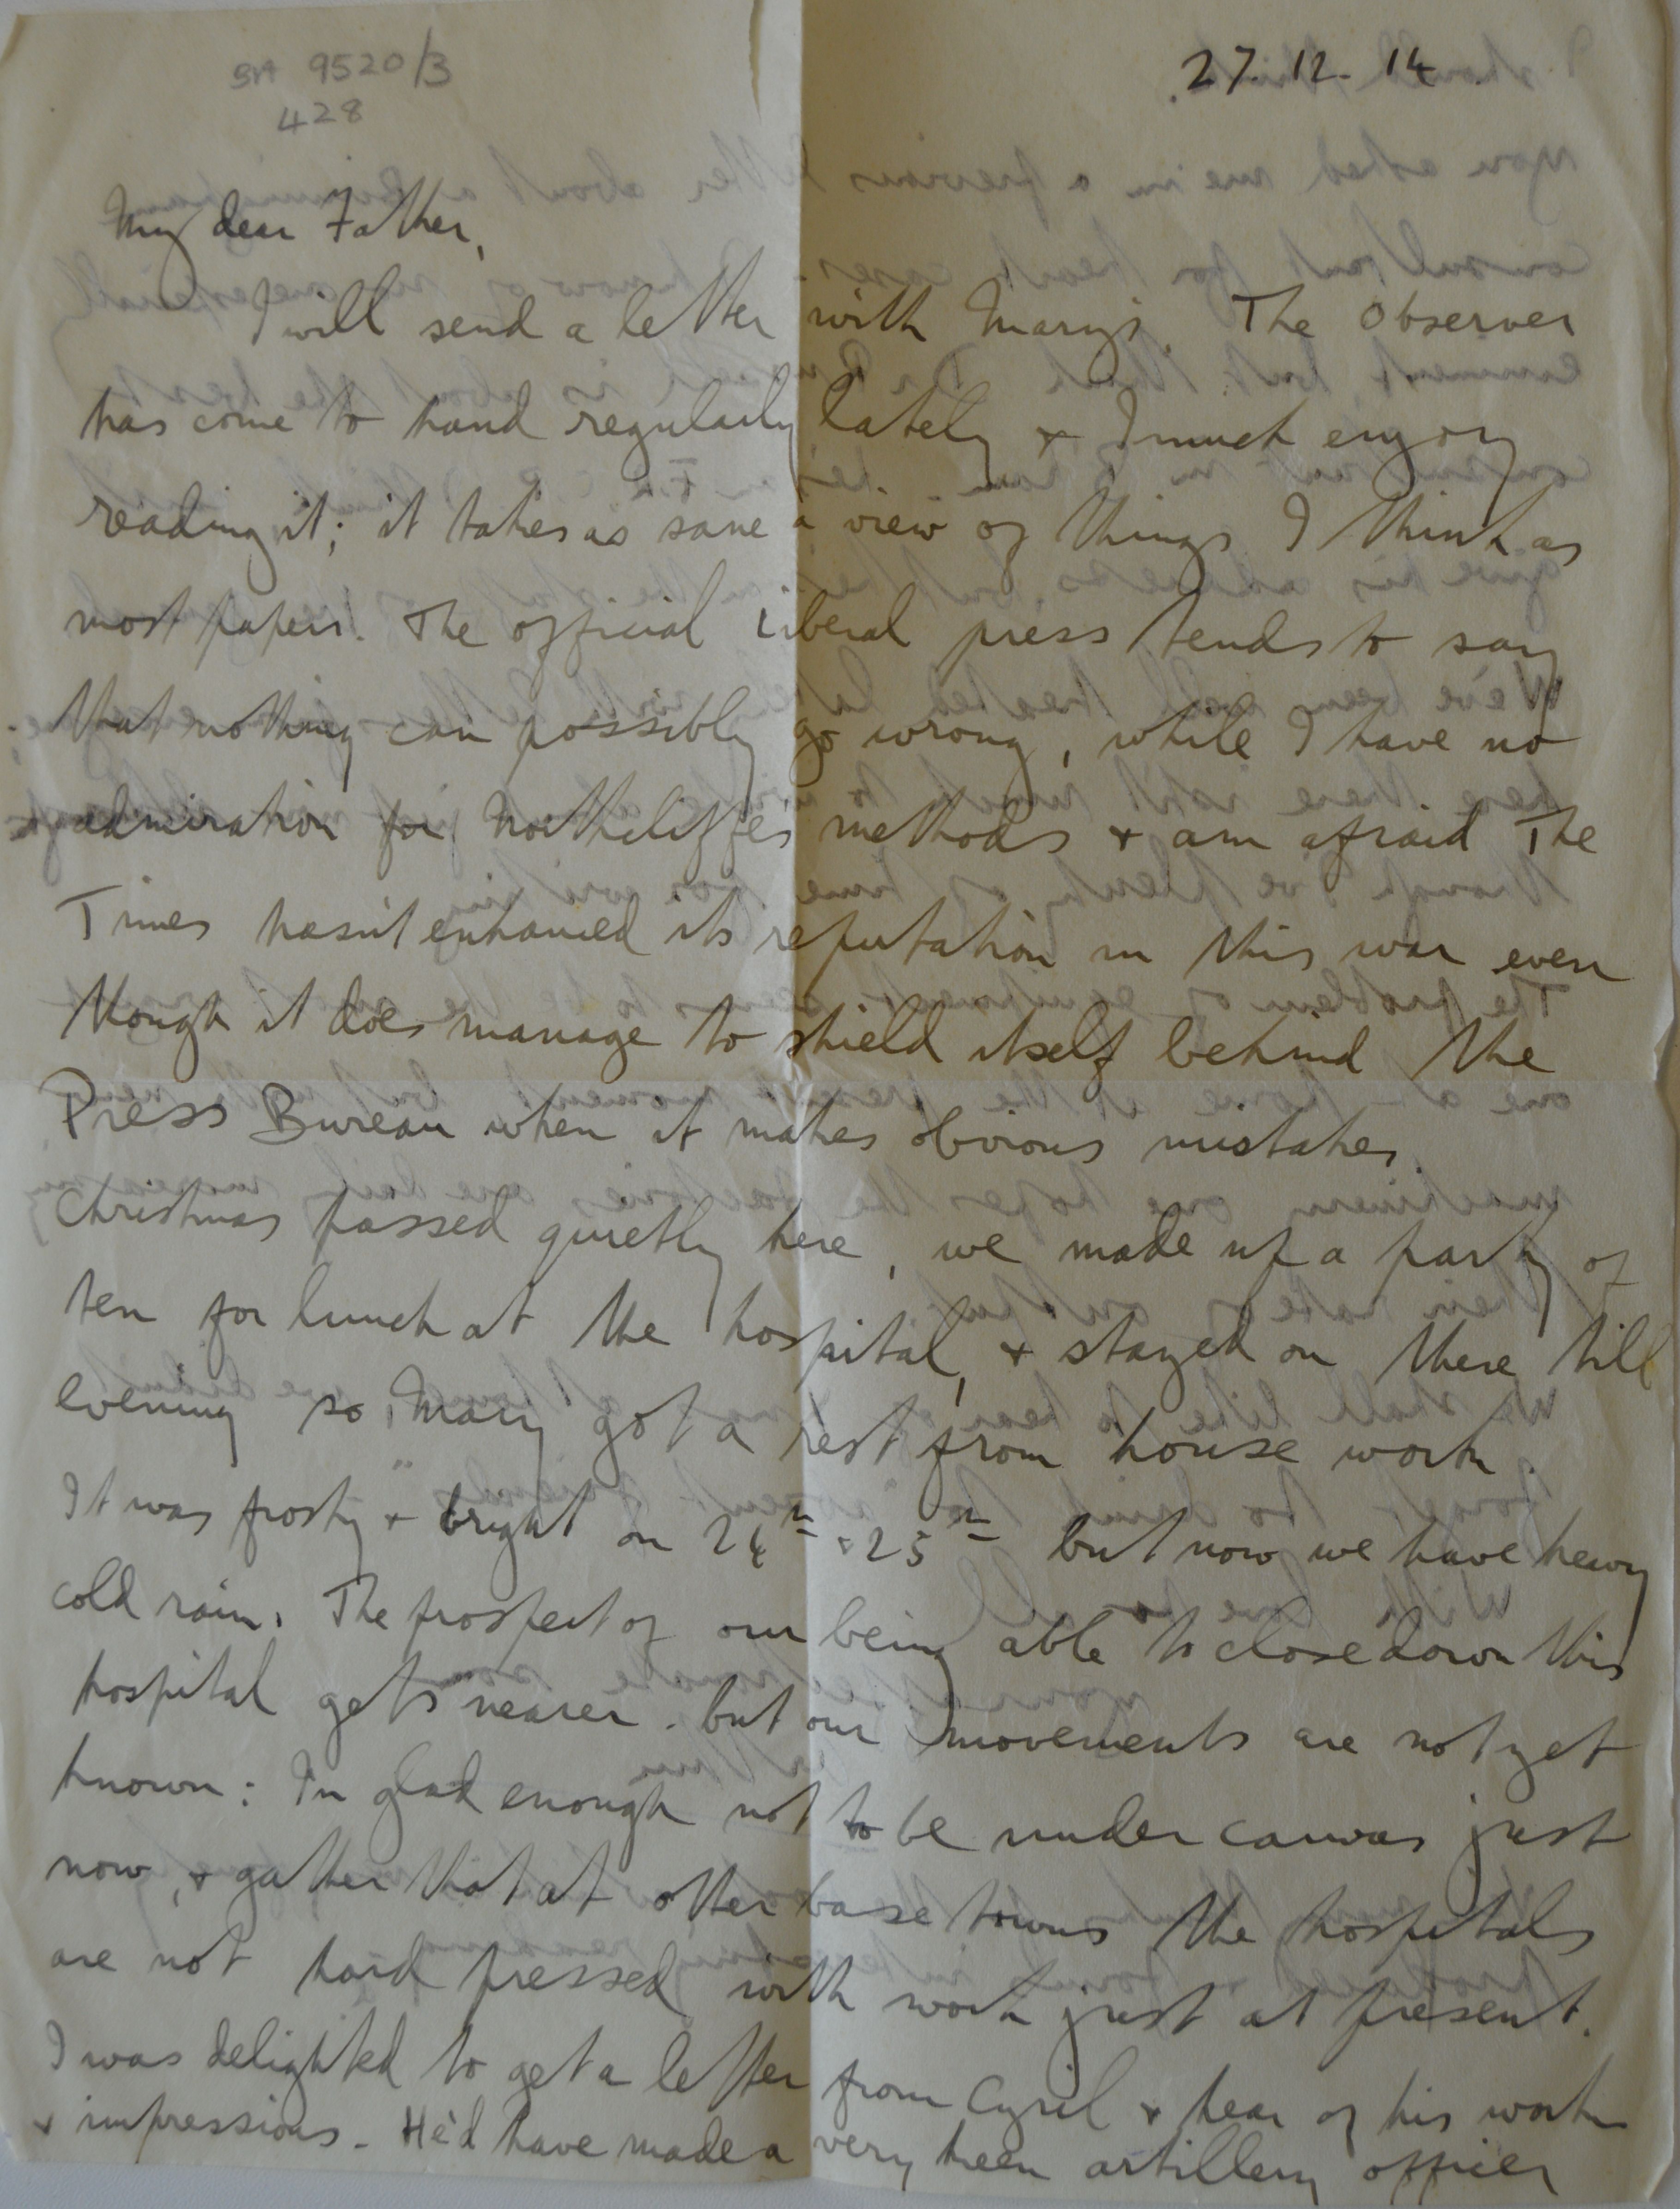 SA 9520/3
428
27.12.14.
My dear Father,
I will send a letter with Mary's. The Observer
has come to hand regularly lately & I much enjoy
reading it; it takes as sane a view of things I think as
most papers. The official Liberal press tends to say
that nothing can possibly go wrong, while I have no
admiration for Northcliffe's methods & am afraid The
Times hasn't enhanced its reputation in this war even
though it does manage to shield itself behind the
Press Bureau when it makes obvious mistakes.
Christmas passed quietly here, we made up a party of
ten for lunch at the hospital, & stayed on there till
evening so Mary got a rest from house work.
It was frosty & bright on 24th & 25th but now we have heavy
cold rain. The prospect of our being able to close down this
hospital gets nearer. but our movements are not yet
known: I'm glad enough not to be under canvas just
now, & gather that at other base towns the hospitals
are not hard pressed with work just at present.
I was delighted to get a letter from Cyril & hear of his work
& impressions. He'd have made a very keen artillery officer